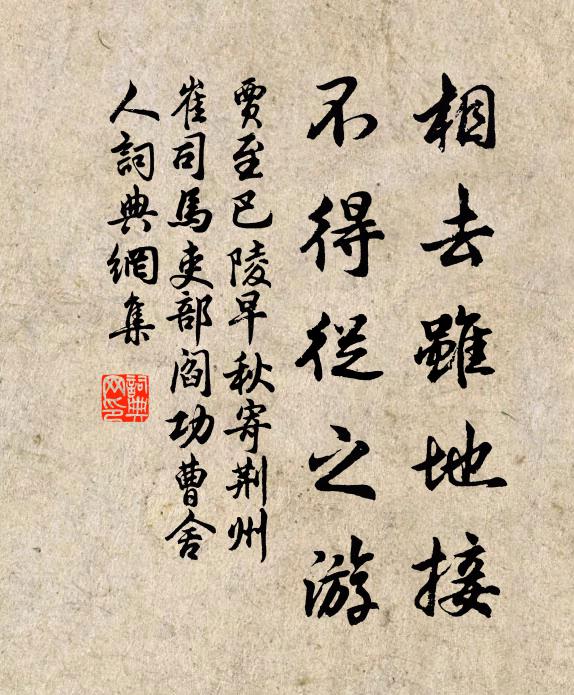 相去雖地接
不得從之游
賈至巴陵早秋寄荆州
崔司馬吏部閻功曹舍
人詞典網集
詞典
网印